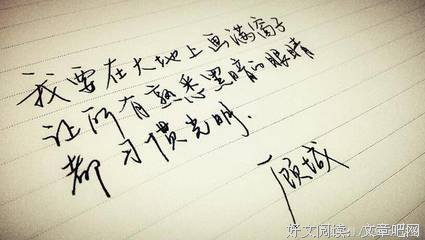 我要在大地上画满窗子
让所有熟悉黑暗的眼睛
都习惯光明.
顾城
好文阅读：/文章吧网